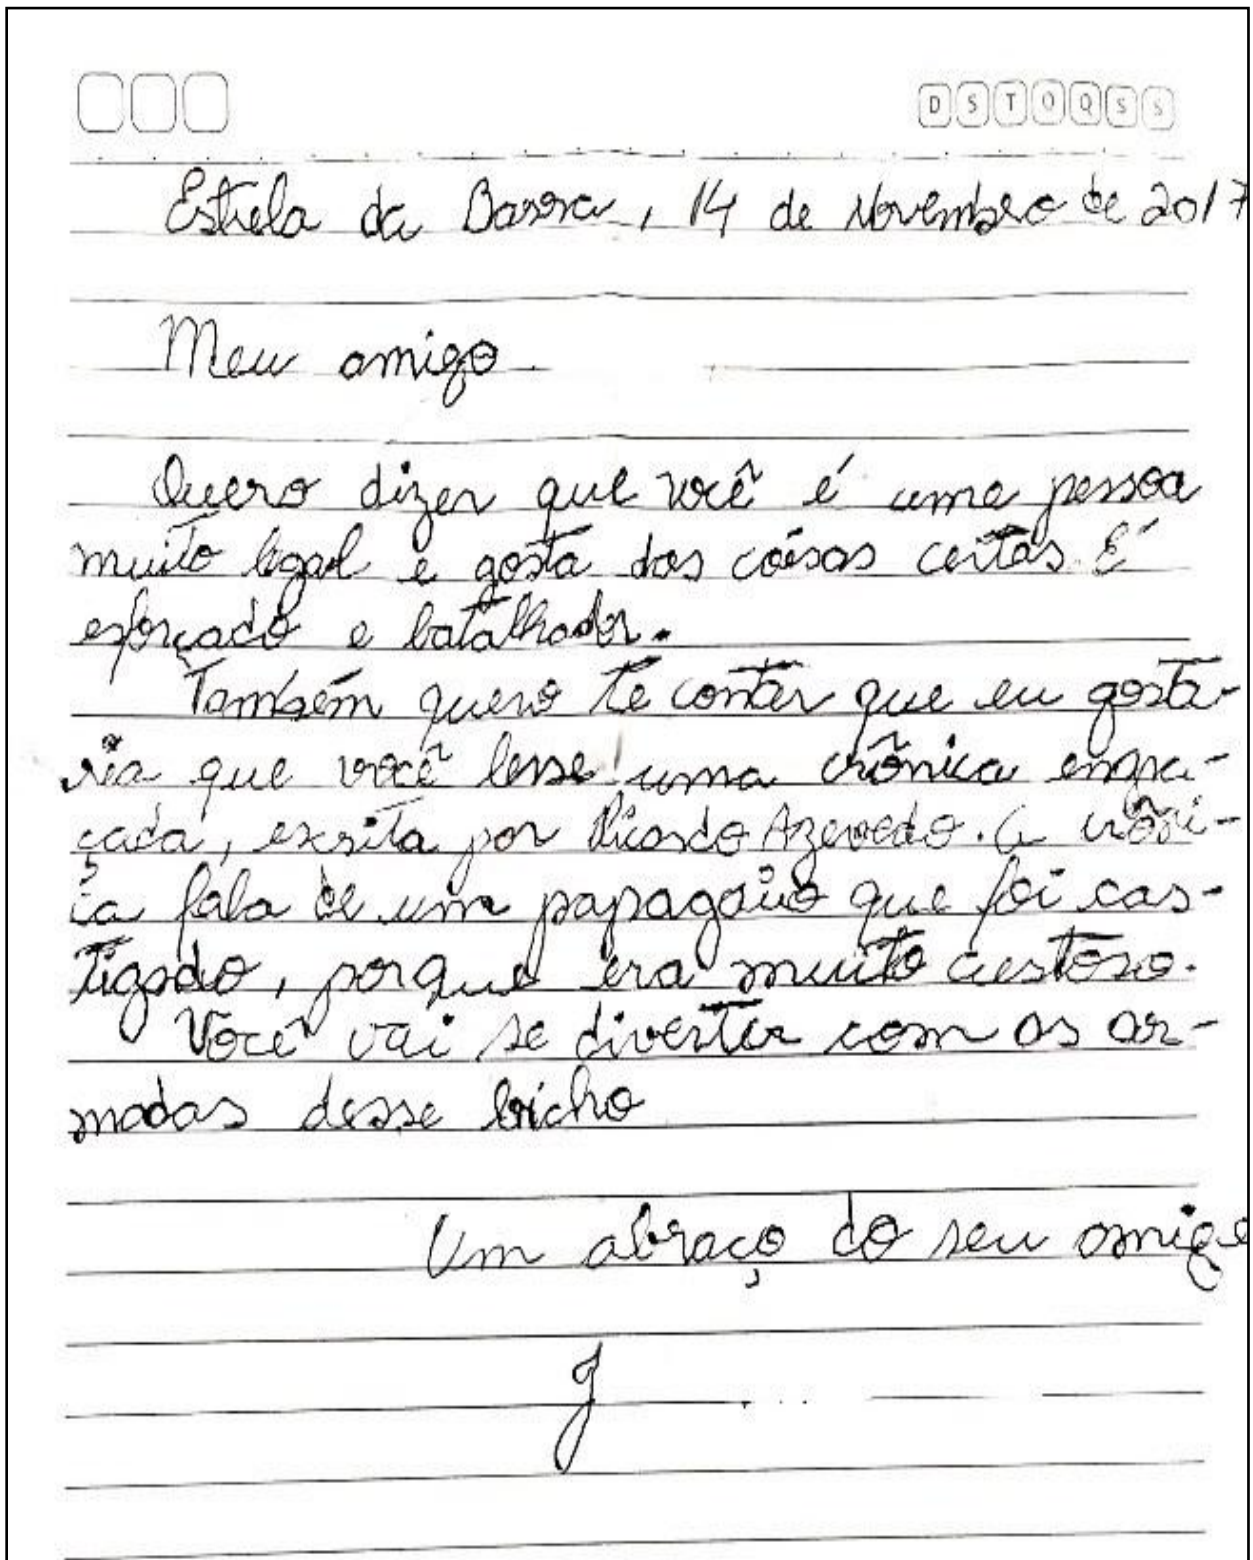 D S T Q Q S S
Estrela da Barra, 14 de Novembro de 2017
Meu amigo
Quero dizer que você é uma pessoa
muito legal e gosta das coisas certas. É
esforçado e batalhador.
Também quero te contar que eu gosta-
ria que você lesse uma crônica engra-
çada, escrita por Ricardo Azevedo. A crôni-
ca fala de um papagaio que foi cas-
tigado, porque era muito custoso.
Você vai se divertir com as ar-
madas desse bicho
Um abraço do seu amigo
J